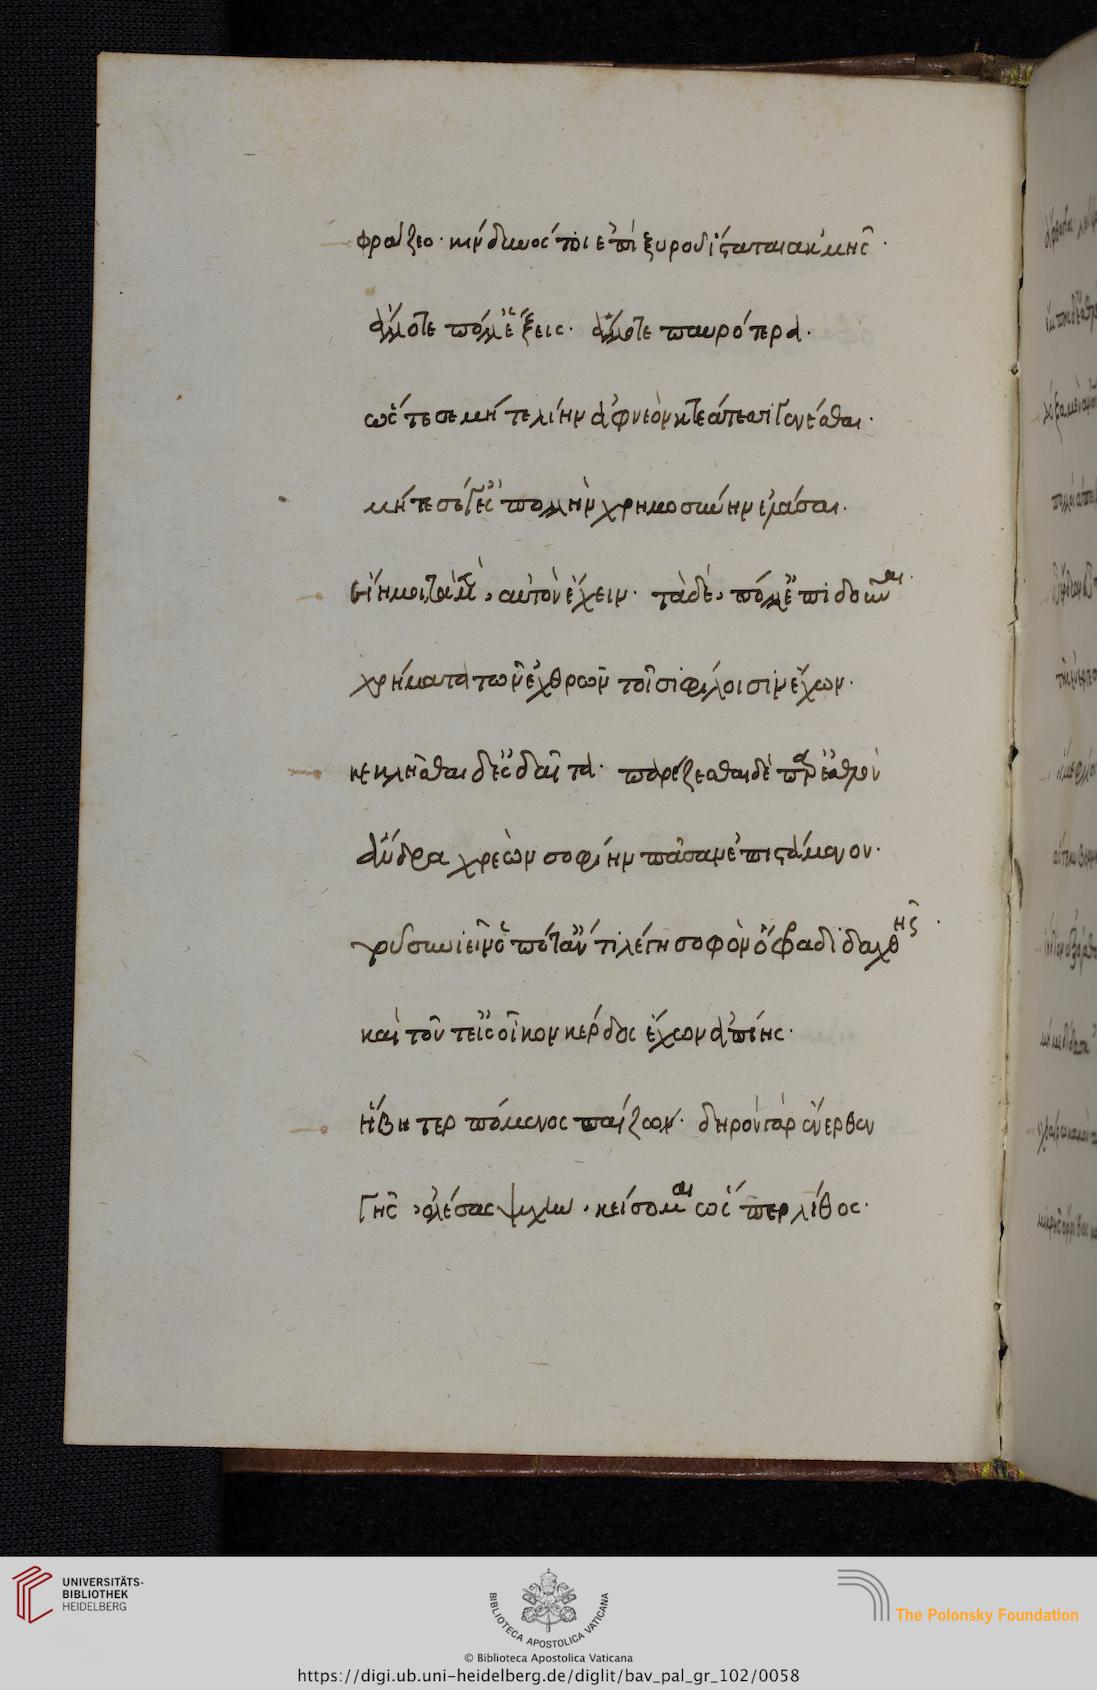 φράζεο· κίνδυνός τοι ἐπὶ ξυροῦ ἵσταται ἀκμῆς·
ἄλλοτε πόλλ' ἕξεις· ἄλλοτε παυρότερα·
ὥς τε σε μήτε λίην ἀφνεὸν κτεάτεσσι γενέσθαι·
μήτε σέ γ' ἐς πολλὴν χρημοσύνην ἐλάσαι·
εἴη μοι τὰ μὲν, αὐτὸν ἔχειν· τὰ δὲ, πόλλ' ἐπιδοῦναι·
χρήματα τῶν ἐχθρῶν τοῖσι φίλοισιν ἔχων·
κεκλῆσθαι δ' ἐς δαῖτα· παρέζεσθαι δὲ παρ' ἐσθλὸν
ἄνδρα χρεὼν σοφίην πᾶσαν ἐπιστάμενον·
τοῦ συνιεῖν ὁπόταν τι λέγη σοφὸν ὄφρα διδαχθῆς·
καὶ τοῦτ' εἰς οἶκον κέρδος ἔχων ἀπίης·
ἥβη τερπόμενος παίζων· δηρὸν γὰρ ἔνερθεν
γῆς, ὀλέσας ψυχὴν, κείσομαι ὥσπερ λίθος·
UNIVERSITÄTS-
BIBLIOTHEK
HEIDELBERG
BIBLIOTECA APOSTOLICA VATICANA
The Polonsky Foundation
© Biblioteca Apostolica Vaticana
https://digi.ub.uni-heidelberg.de/diglit/bav_pal_gr_102/0058